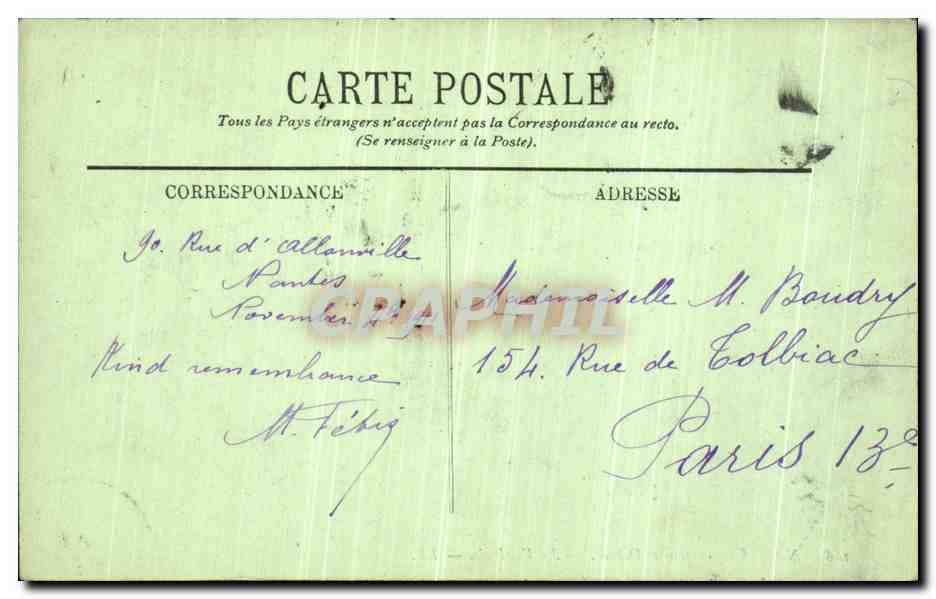 CARTE POSTALE
Tous les Pays étrangers n'acceptent pas la Correspondance au recto.
(Se renseigner à la Poste).
CORRESPONDANCE
90. Rue d'Allonville
Nantes
November
Kind remembrance
M.
ADRESSE
Mademoiselle M. Boudry
154. Rue de Tolbiac
Paris 13e
CPAPHIL